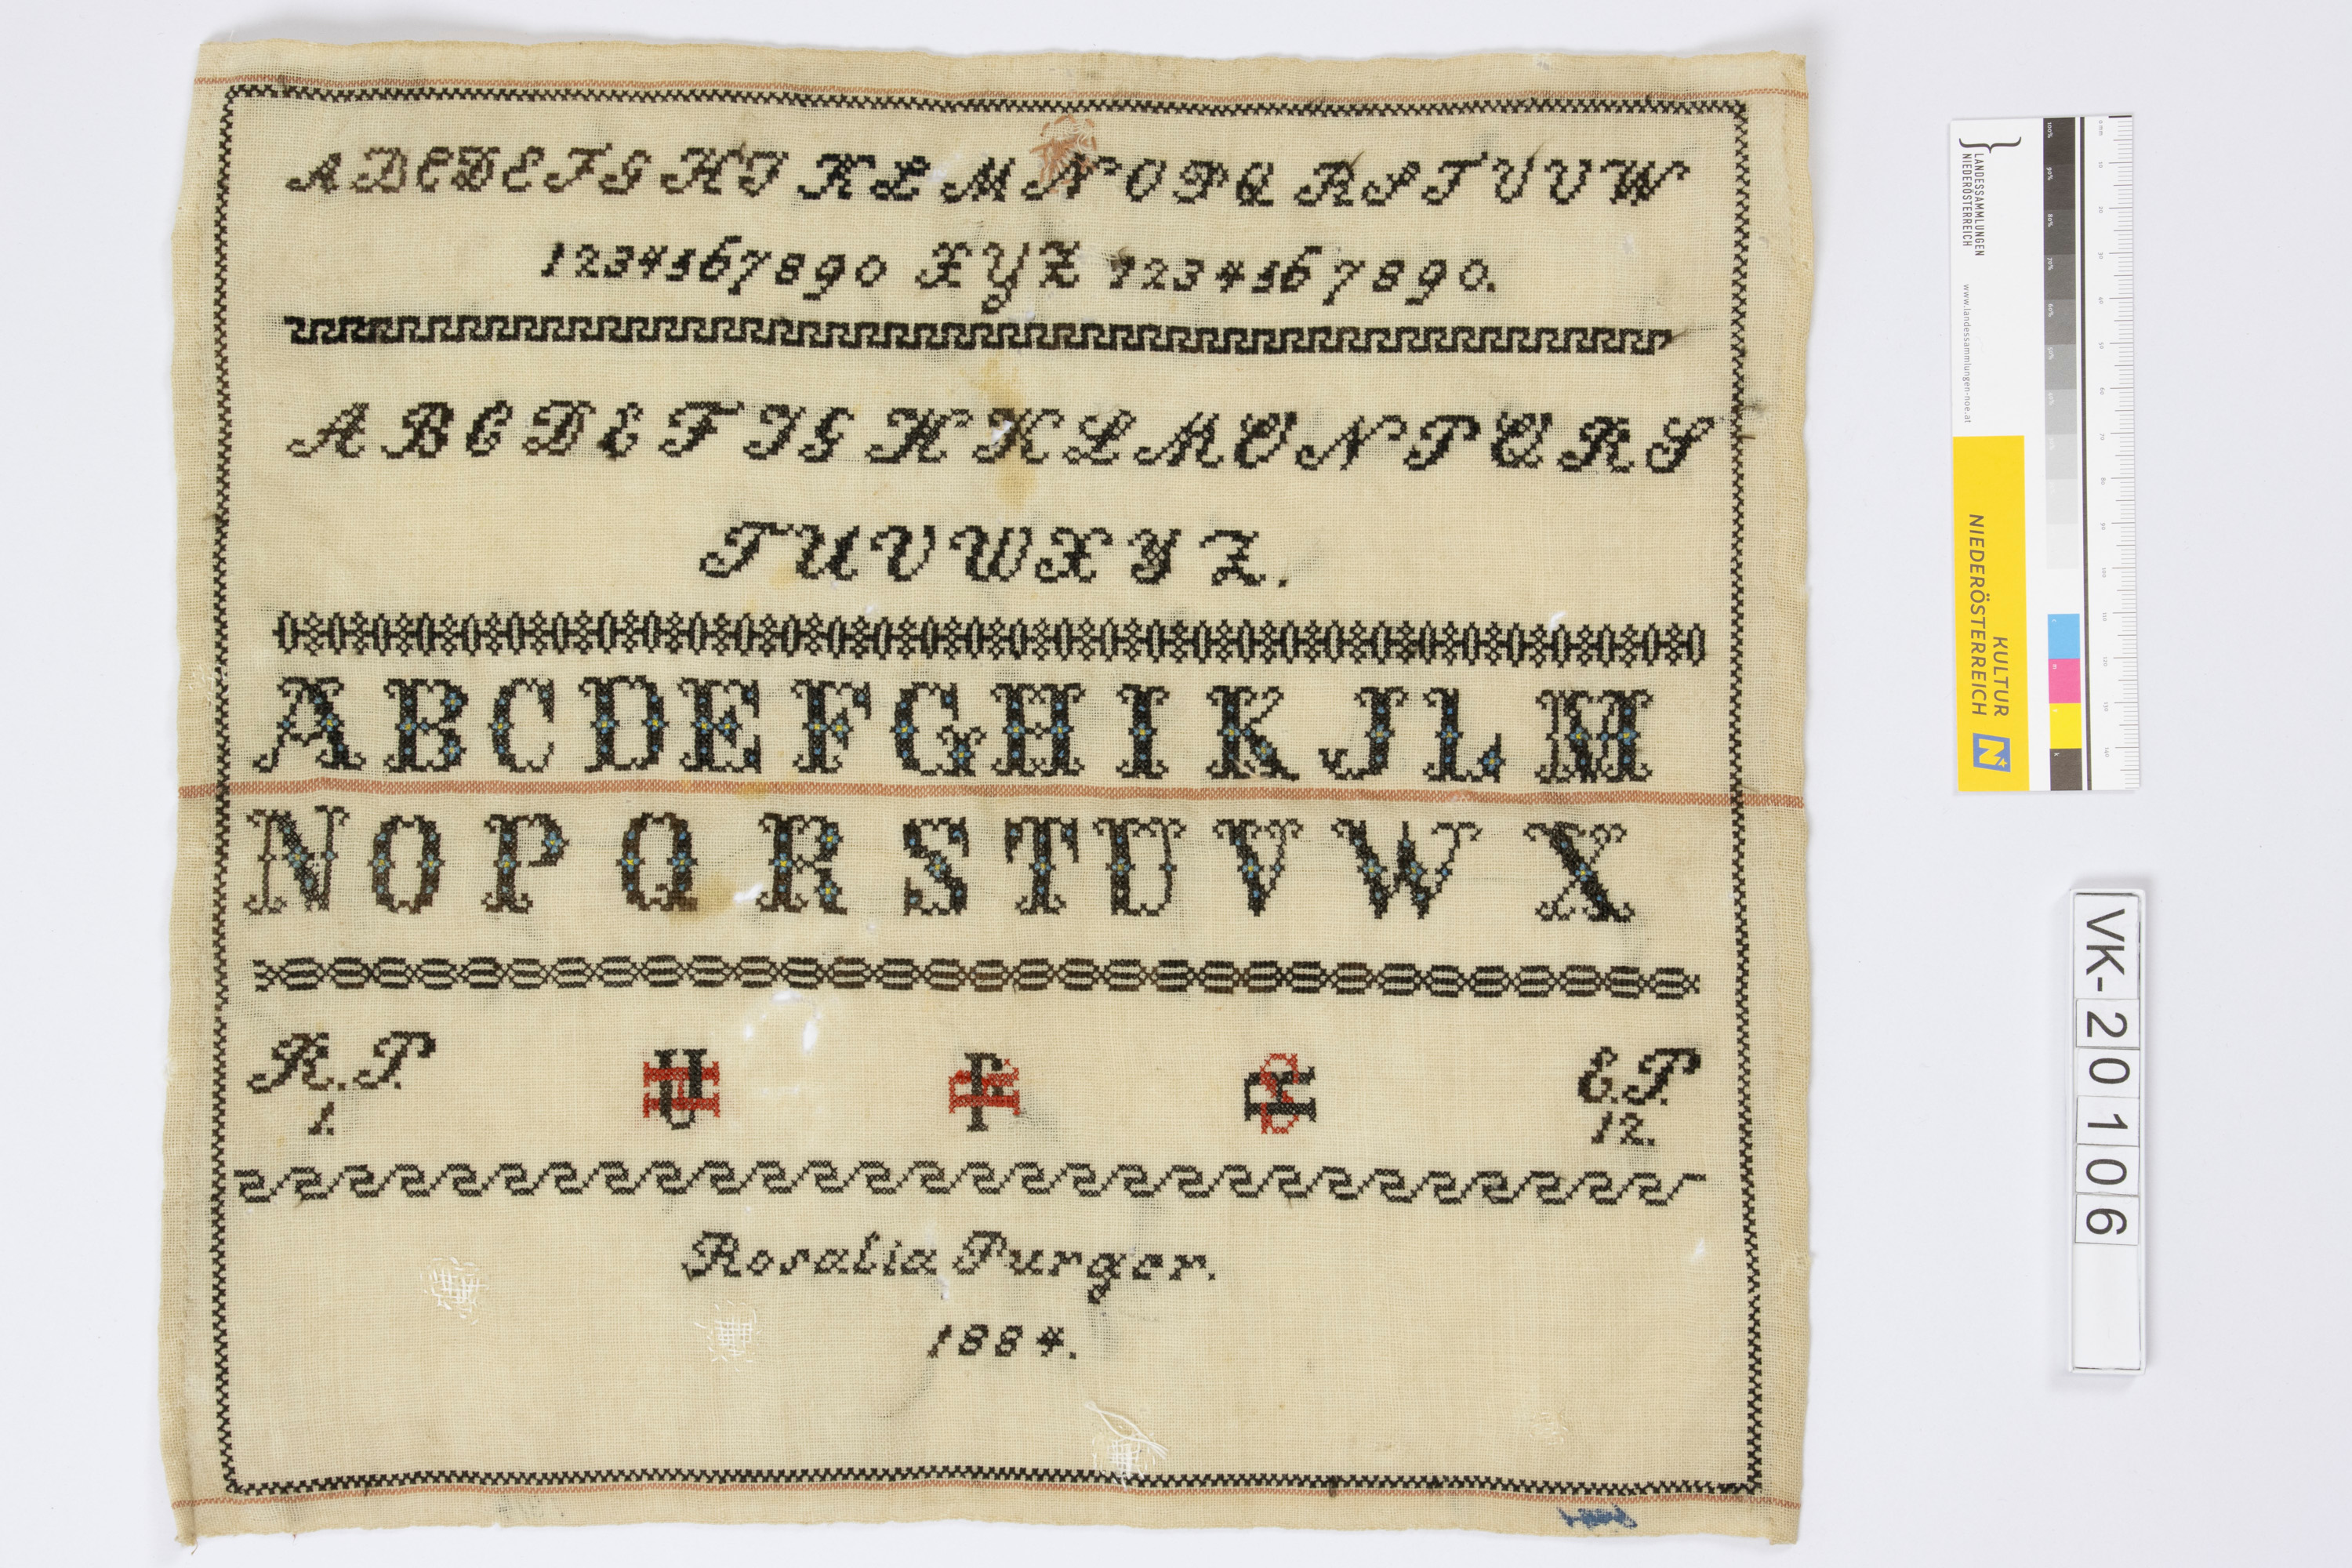 A B C D E F G H I K L M N O P Q R S T U V W
1 2 3 4 5 6 7 8 9 0 X Y Z 1 2 3 4 5 6 7 8 9 0.
A B C D E F I G H K L M O N P Q R S
T U V W X Y Z.
A B C D E F G H I K J L M
N O P Q R S T U V W X
R. P. E. P.
1. 12.
Rosalia Purger.
1884.
LANDESSAMMLUNGEN
NIEDERÖSTERREICH
www.landessammlungen-noe.at
KULTUR
NIEDERÖSTERREICH
VK-20106